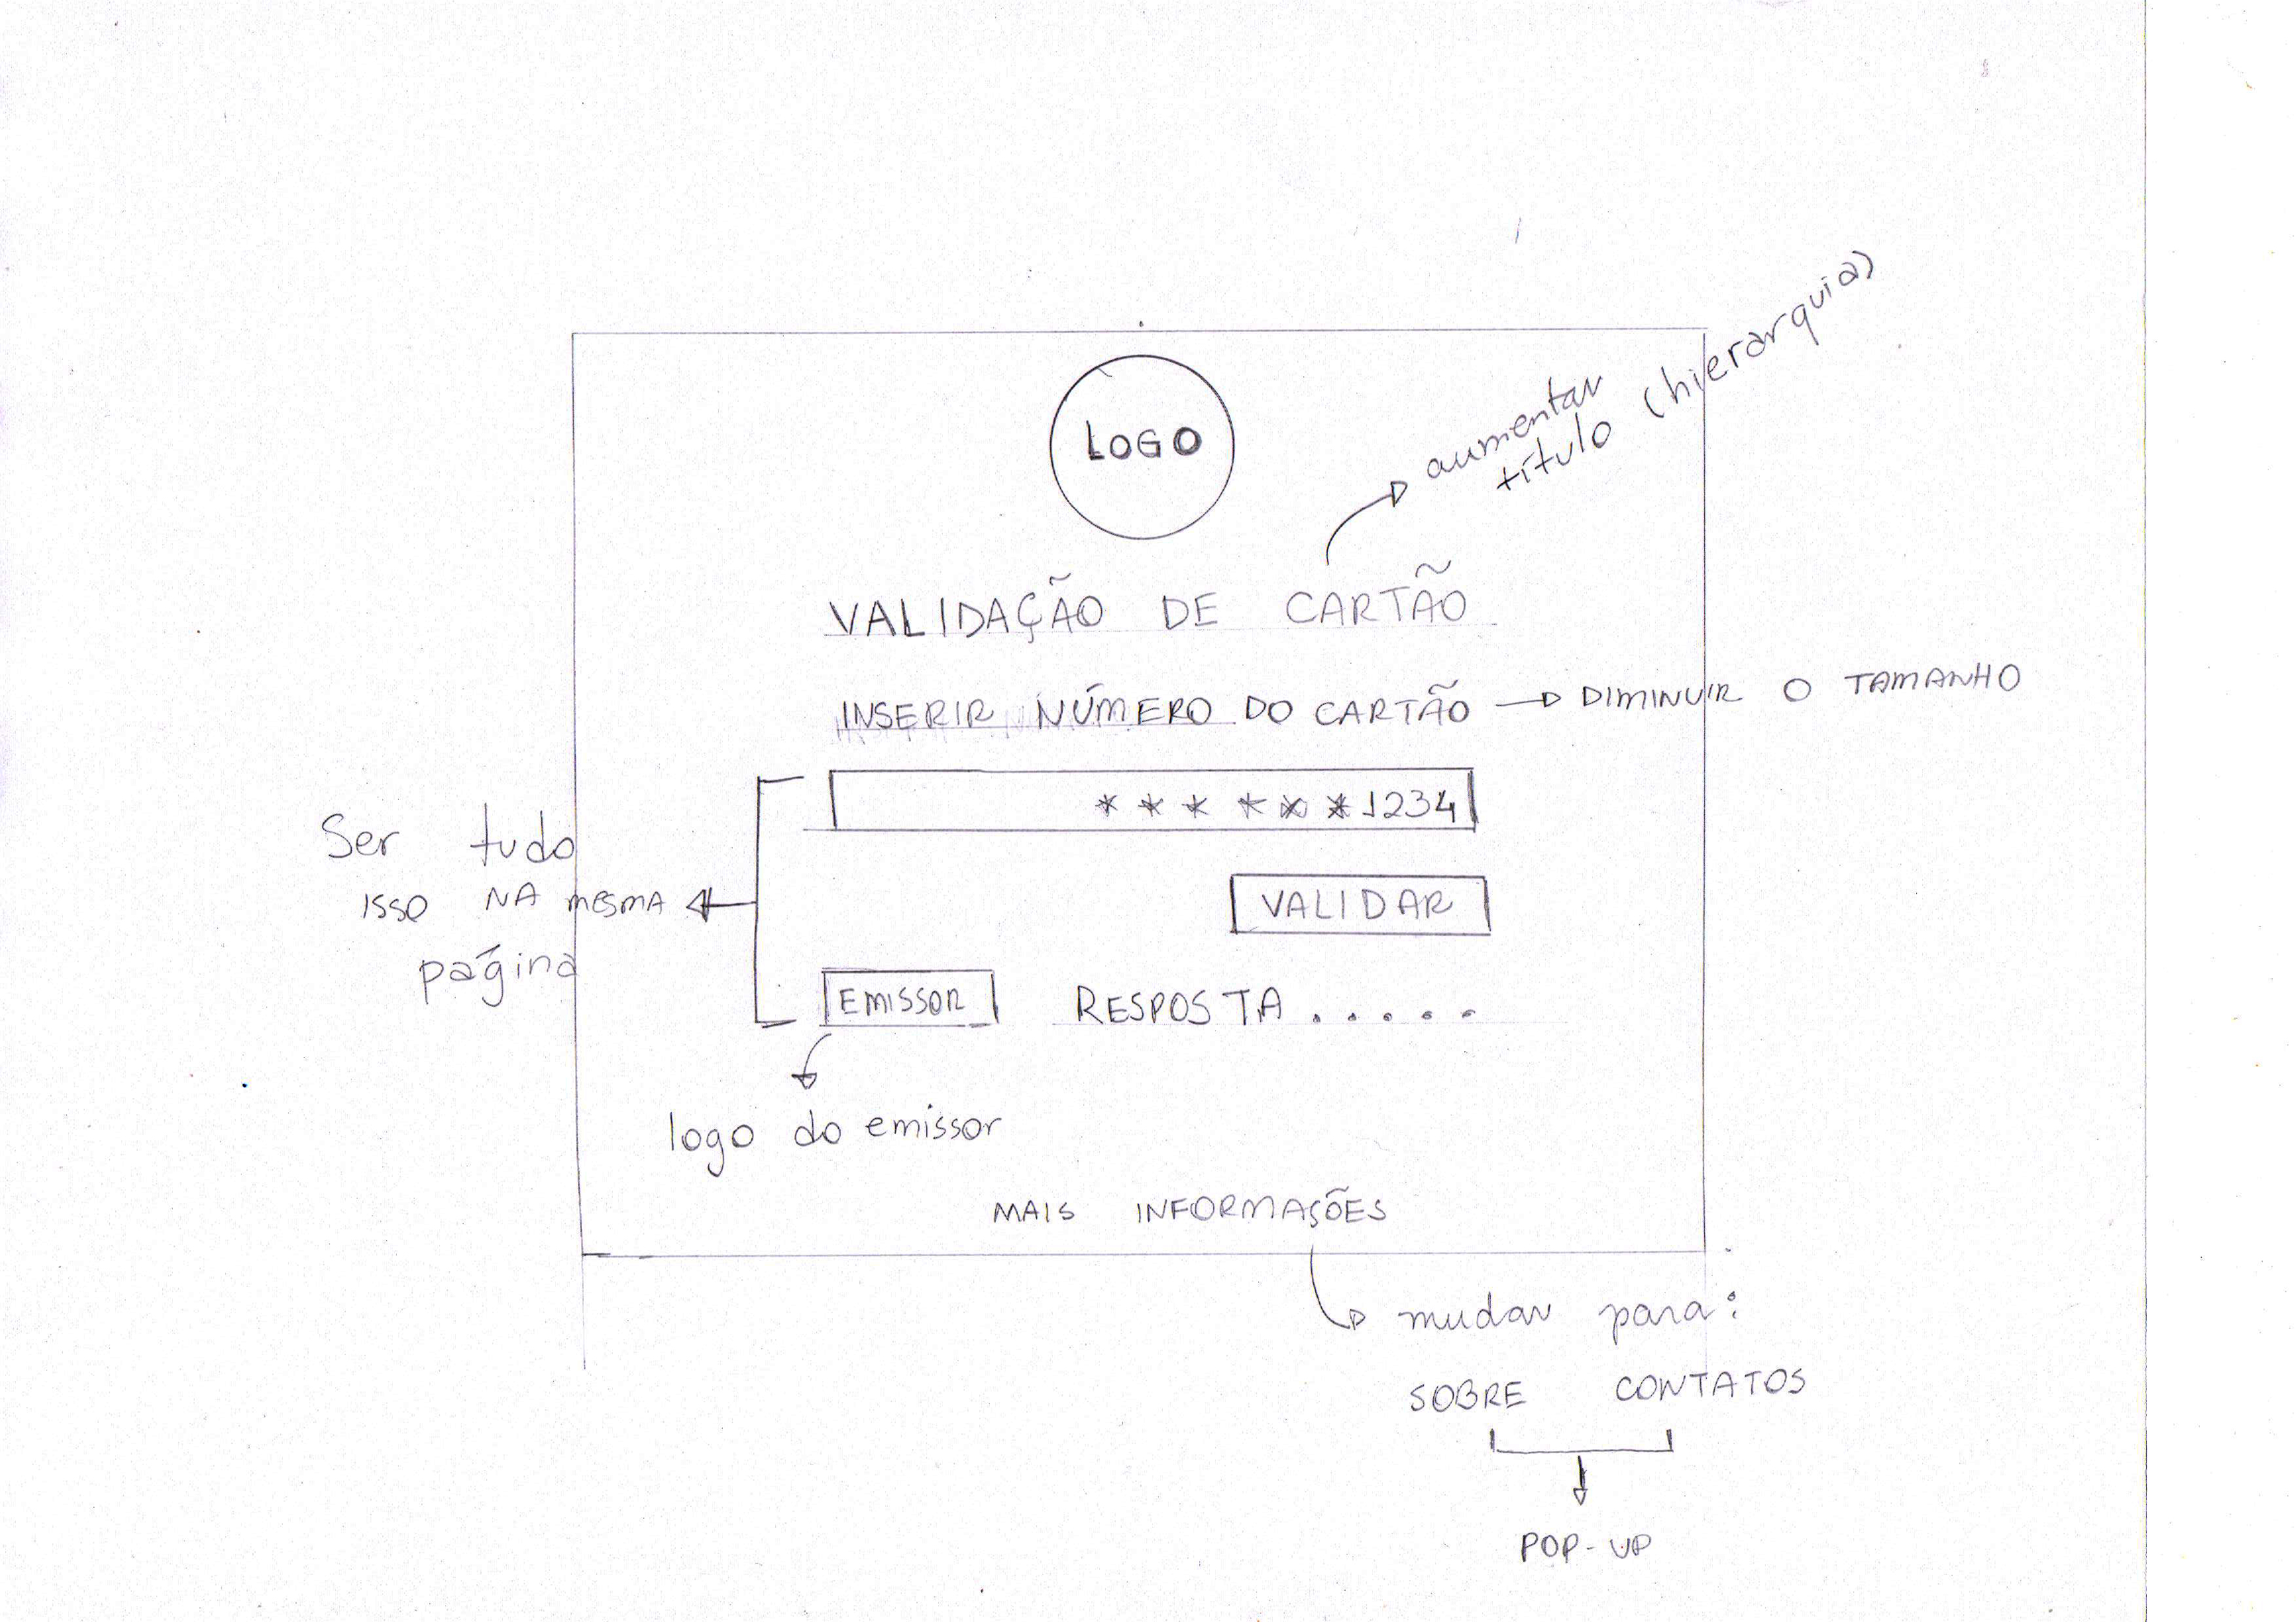 LOGO
aumentar
título (hierarquia)
VALIDAÇÃO DE CARTÃO
INSERIR NÚMERO DO CARTÃO → DIMINUIR O TAMANHO
* * * * * * 1234
Ser tudo
ISSO NA MESMA
página
VALIDAR
EMISSOR RESPOSTA . . . . .
logo do emissor
MAIS INFORMAÇÕES
mudar para:
SOBRE CONTATOS
POP-UP